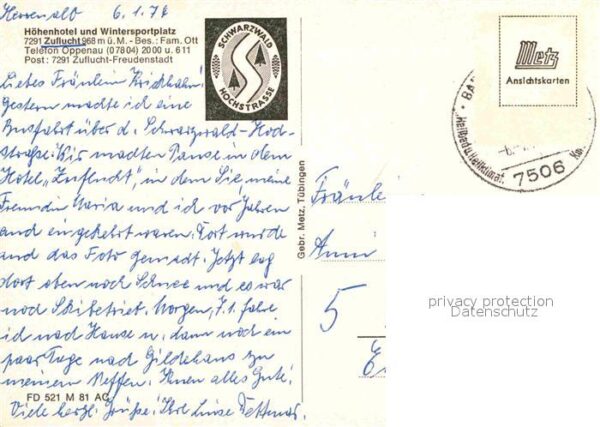 Herrenalb 6.1.74
Höhenhotel und Wintersportplatz
7291 Zuflucht 968 m ü. M. - Bes.: Fam. Ott
Telefon Oppenau (07804) 2000 u. 611
Post: 7291 Zuflucht-Freudenstadt
SCHWARZWALD
HOCHSTRASSE
Metz
Ansichtskarten
Heilbad u. Heilklimat.
7506
Liebes Fräulein Kirchhahn!
Gestern machte ich eine
Busfahrt über d. Schwarzwald-Hoch-
straße. Wir machten Pause in dem
Hotel "Zuflucht", in dem Sie, meine
Freundin Maria und ich vor Jahren
auch eingekehrt waren. Dort wurde
auch das Foto gemacht. Jetzt lag
dort oben noch Schnee und es war
noch Skibetrieb. Morgen, 7.1. fahre
ich nach Hause u. dann noch ein
paar Tage nach Gildehaus zu
meinem Neffen. Ihnen alles Gute!
Viele herzl. Grüße! Ihre Luise
FD 521 M 81 AC
Gebr. Metz, Tübingen
Fräulein
Änni
5
privacy protection
Datenschutz